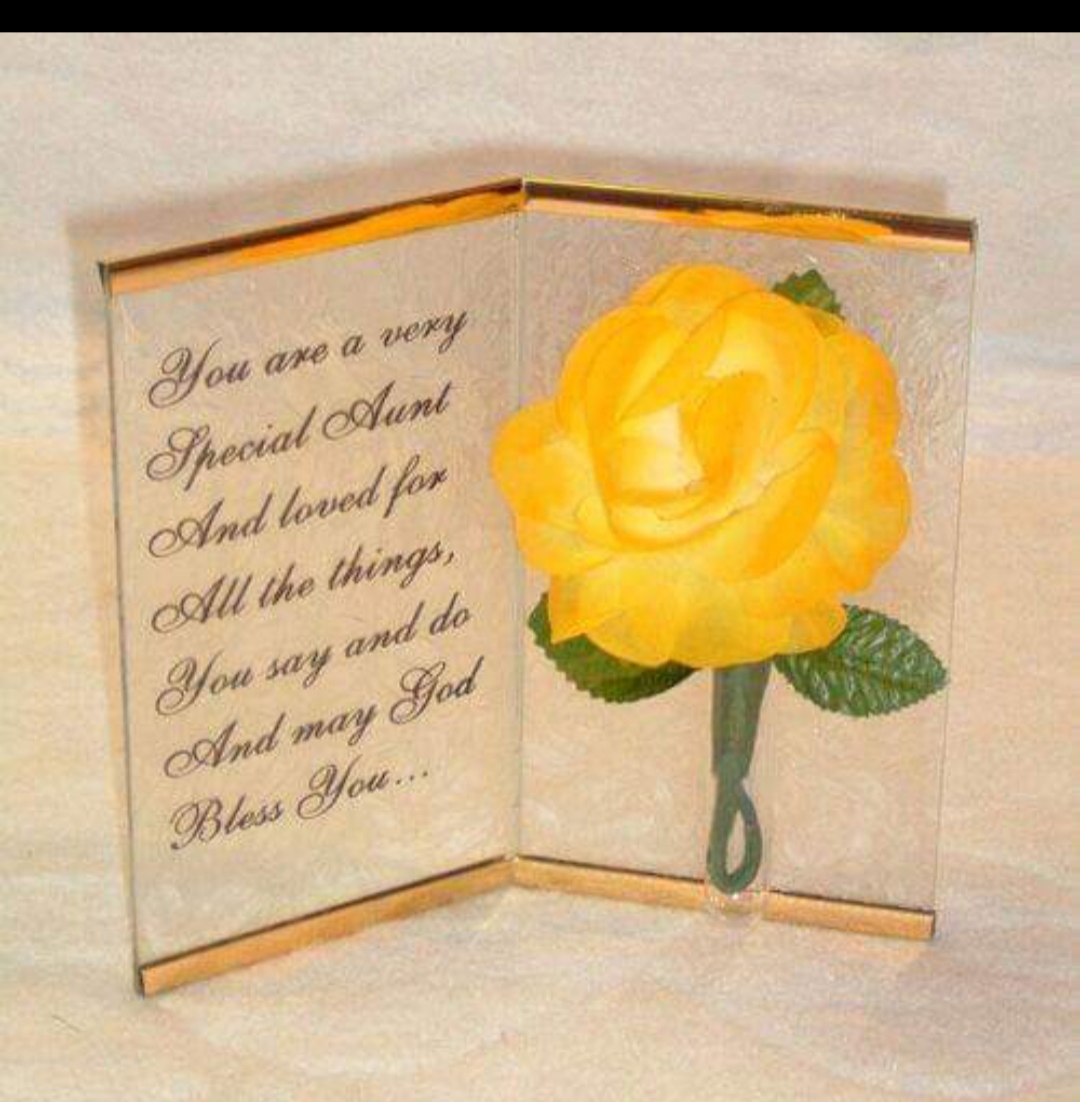 You are a very
Special Aunt
And loved for
All the things,
You say and do
And may God
Bless You...